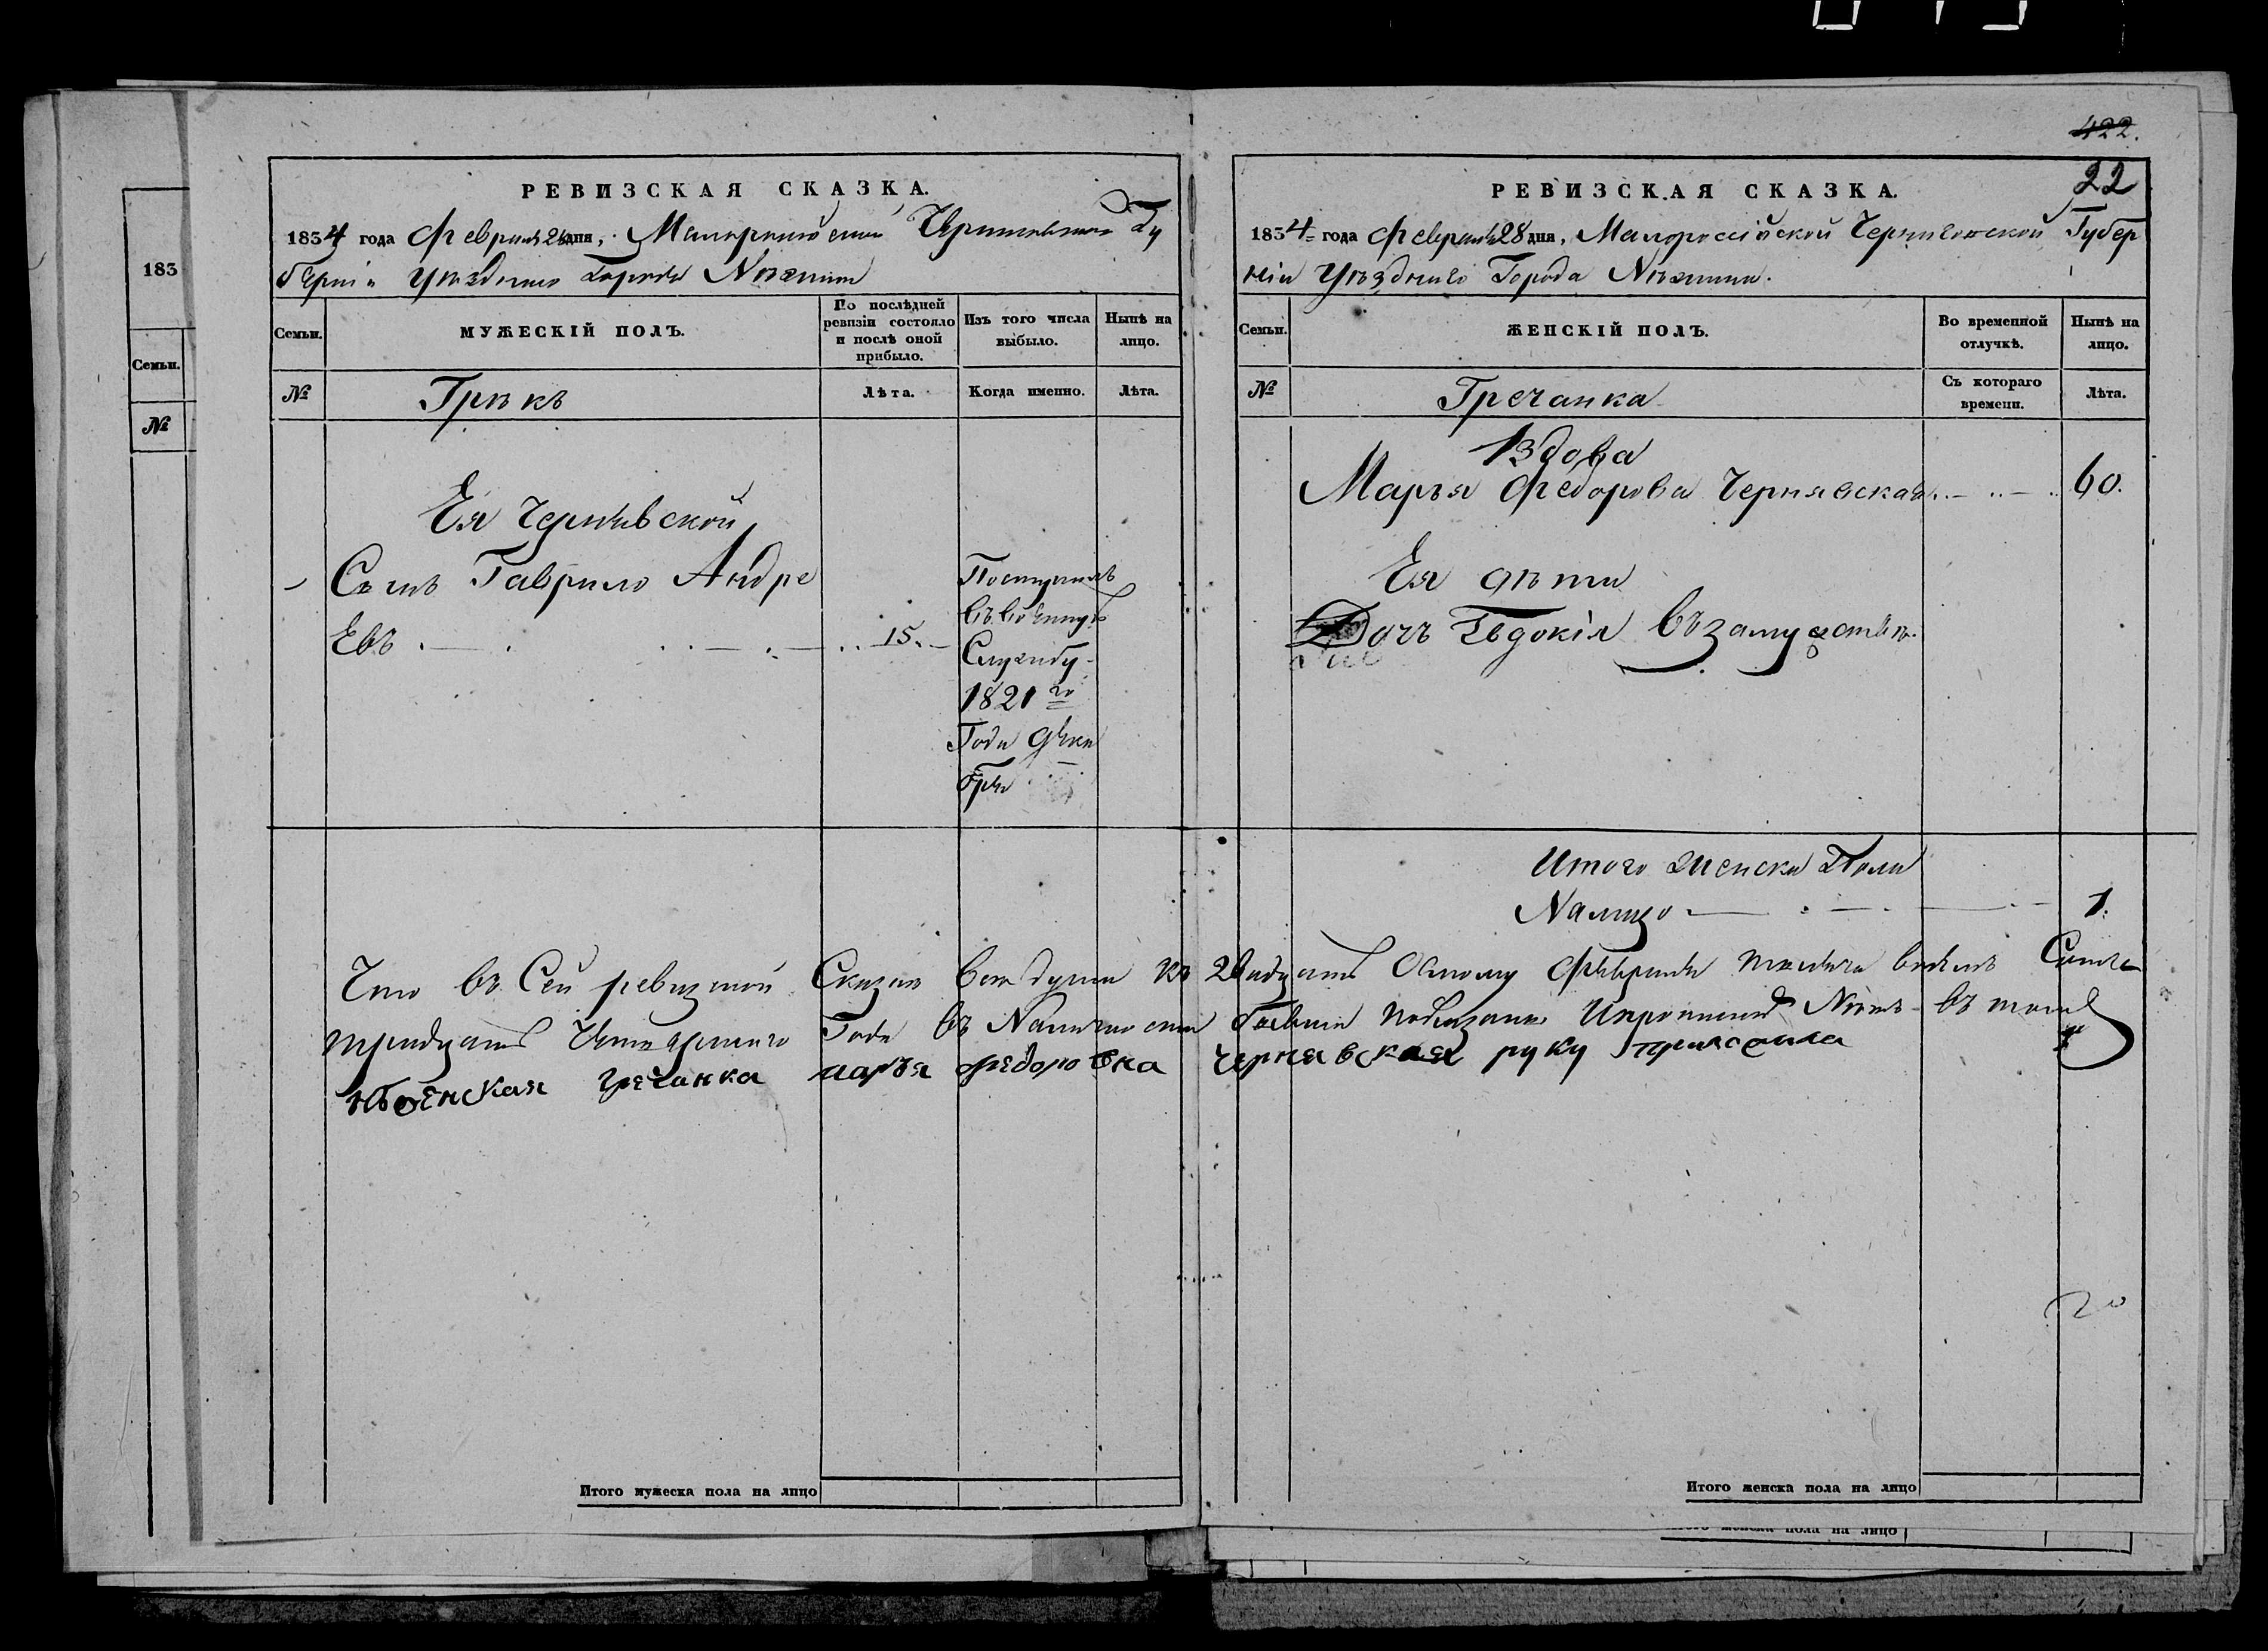 422.
22
183
Семьи.
№
РЕВИЗСКАЯ СКАЗКА.
1834 года Февраля 28 дня, Малороссійской Черниговской Гу
берніи Уѣзднаго Города Нѣжина
Семьи.
МУЖЕСКІЙ ПОЛЪ.
По послѣдней ревизіи состояло и послѣ оной прибыло.
Изъ того числа выбыло.
Нынѣ на лицо.
№
Грѣкъ
Лѣта.
Когда именно.
Лѣта.
Ея Чернявской
Сынъ Гаврило Андре
евъ 15.
Поступилъ
въ военную
Службу
1821го
Года дека
бря
РЕВИЗСКАЯ СКАЗКА.
1834 года Февраля 28 дня, Малороссійской Черниговской Губер
ніи Уѣзднаго Города Нѣжина.
Семьи.
ЖЕНСКІЙ ПОЛЪ.
Во временной отлучкѣ.
Нынѣ на лицо.
№
Гречанка
Съ котораго времени.
Лѣта.
Вдова
Марья Федорова Чернявская 60.
Ея дѣти
Дочь Евдокія въ замужствѣ.
Итого женска Пола
Налицо 1.
Что въ Сей ревизкой Сказкѣ все души къ двадцать Осмому Февраля тысяча восемъ Сотъ
тридцать Четвертаго Года въ Наличности показаны и пропиской Нѣтъ въ томъ
нѣженская гречанка марья федоровна чернявская руку приложила
20
Итого мужеска пола на лицо
Итого женска пола на лицо
женска пола на лицо